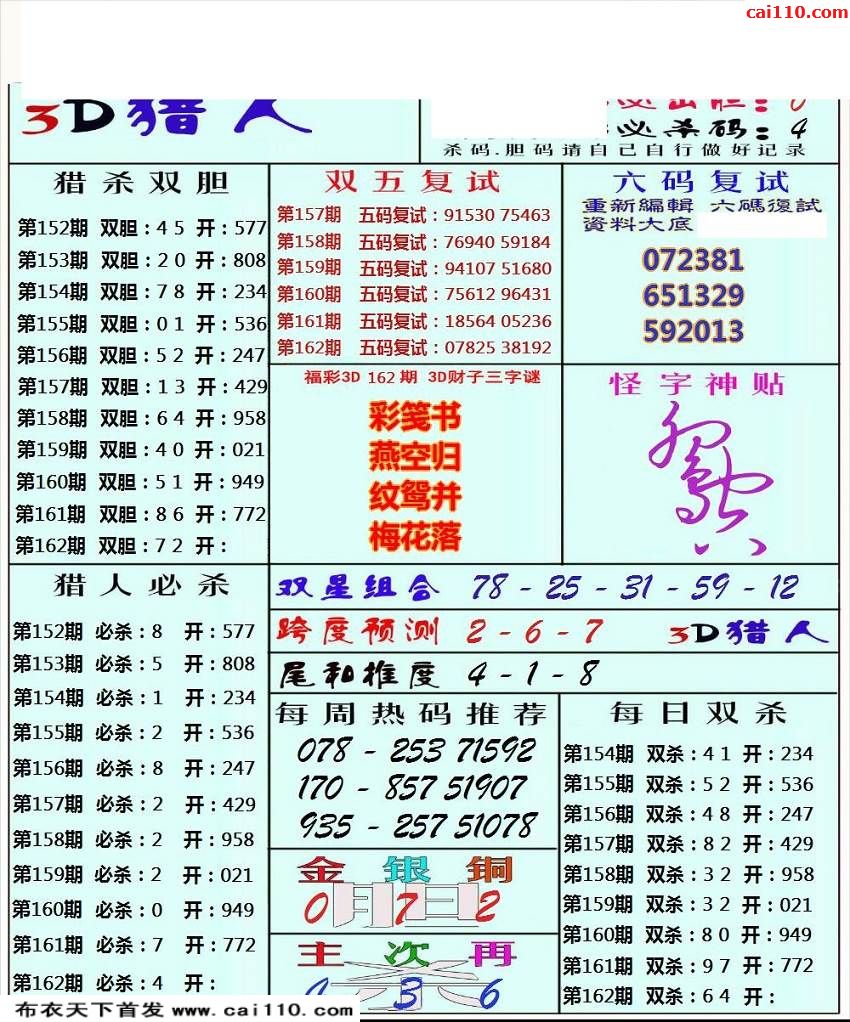 cai110.com
3D猎人
必杀码：4
杀码.胆码请自己自行做好记录
猎杀双胆
第152期 双胆：4 5 开：577
第153期 双胆：2 0 开：808
第154期 双胆：7 8 开：234
第155期 双胆：0 1 开：536
第156期 双胆：5 2 开：247
第157期 双胆：1 3 开：429
第158期 双胆：6 4 开：958
第159期 双胆：4 0 开：021
第160期 双胆：5 1 开：949
第161期 双胆：8 6 开：772
第162期 双胆：7 2 开：
双五复试
第157期 五码复试：91530 75463
第158期 五码复试：76940 59184
第159期 五码复试：94107 51680
第160期 五码复试：75612 96431
第161期 五码复试：18564 05236
第162期 五码复试：07825 38192
六码复试
重新編輯 六碼復試
資料大底
072381
651329
592013
福彩3D 162期 3D财子三字谜
彩笺书
燕空归
纹鸳并
梅花落
怪字神贴
猎人必杀
第152期 必杀：8 开：577
第153期 必杀：5 开：808
第154期 必杀：1 开：234
第155期 必杀：2 开：536
第156期 必杀：8 开：247
第157期 必杀：2 开：429
第158期 必杀：2 开：958
第159期 必杀：2 开：021
第160期 必杀：0 开：949
第161期 必杀：7 开：772
第162期 必杀：4 开：
双星组合 78 - 25 - 31 - 59 - 12
跨度预测 2 - 6 - 7 3D猎人
尾和推度 4 - 1 - 8
每周热码推荐
078 - 253 71592
170 - 857 51907
935 - 257 51078
金 银 铜
0 7 2
主 次 再
3 6
每日双杀
第154期 双杀：4 1 开：234
第155期 双杀：5 2 开：536
第156期 双杀：4 8 开：247
第157期 双杀：8 2 开：429
第158期 双杀：3 2 开：958
第159期 双杀：3 2 开：021
第160期 双杀：8 0 开：949
第161期 双杀：9 7 开：772
第162期 双杀：6 4 开：
布衣天下首发 www.cai110.com